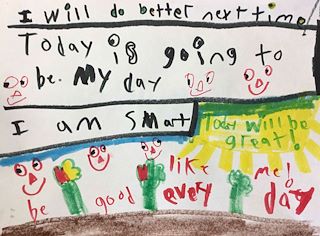 I will do better next time,
Today is going to
be. My day
I am Smart
Today will be
great!
like me!
be good every day